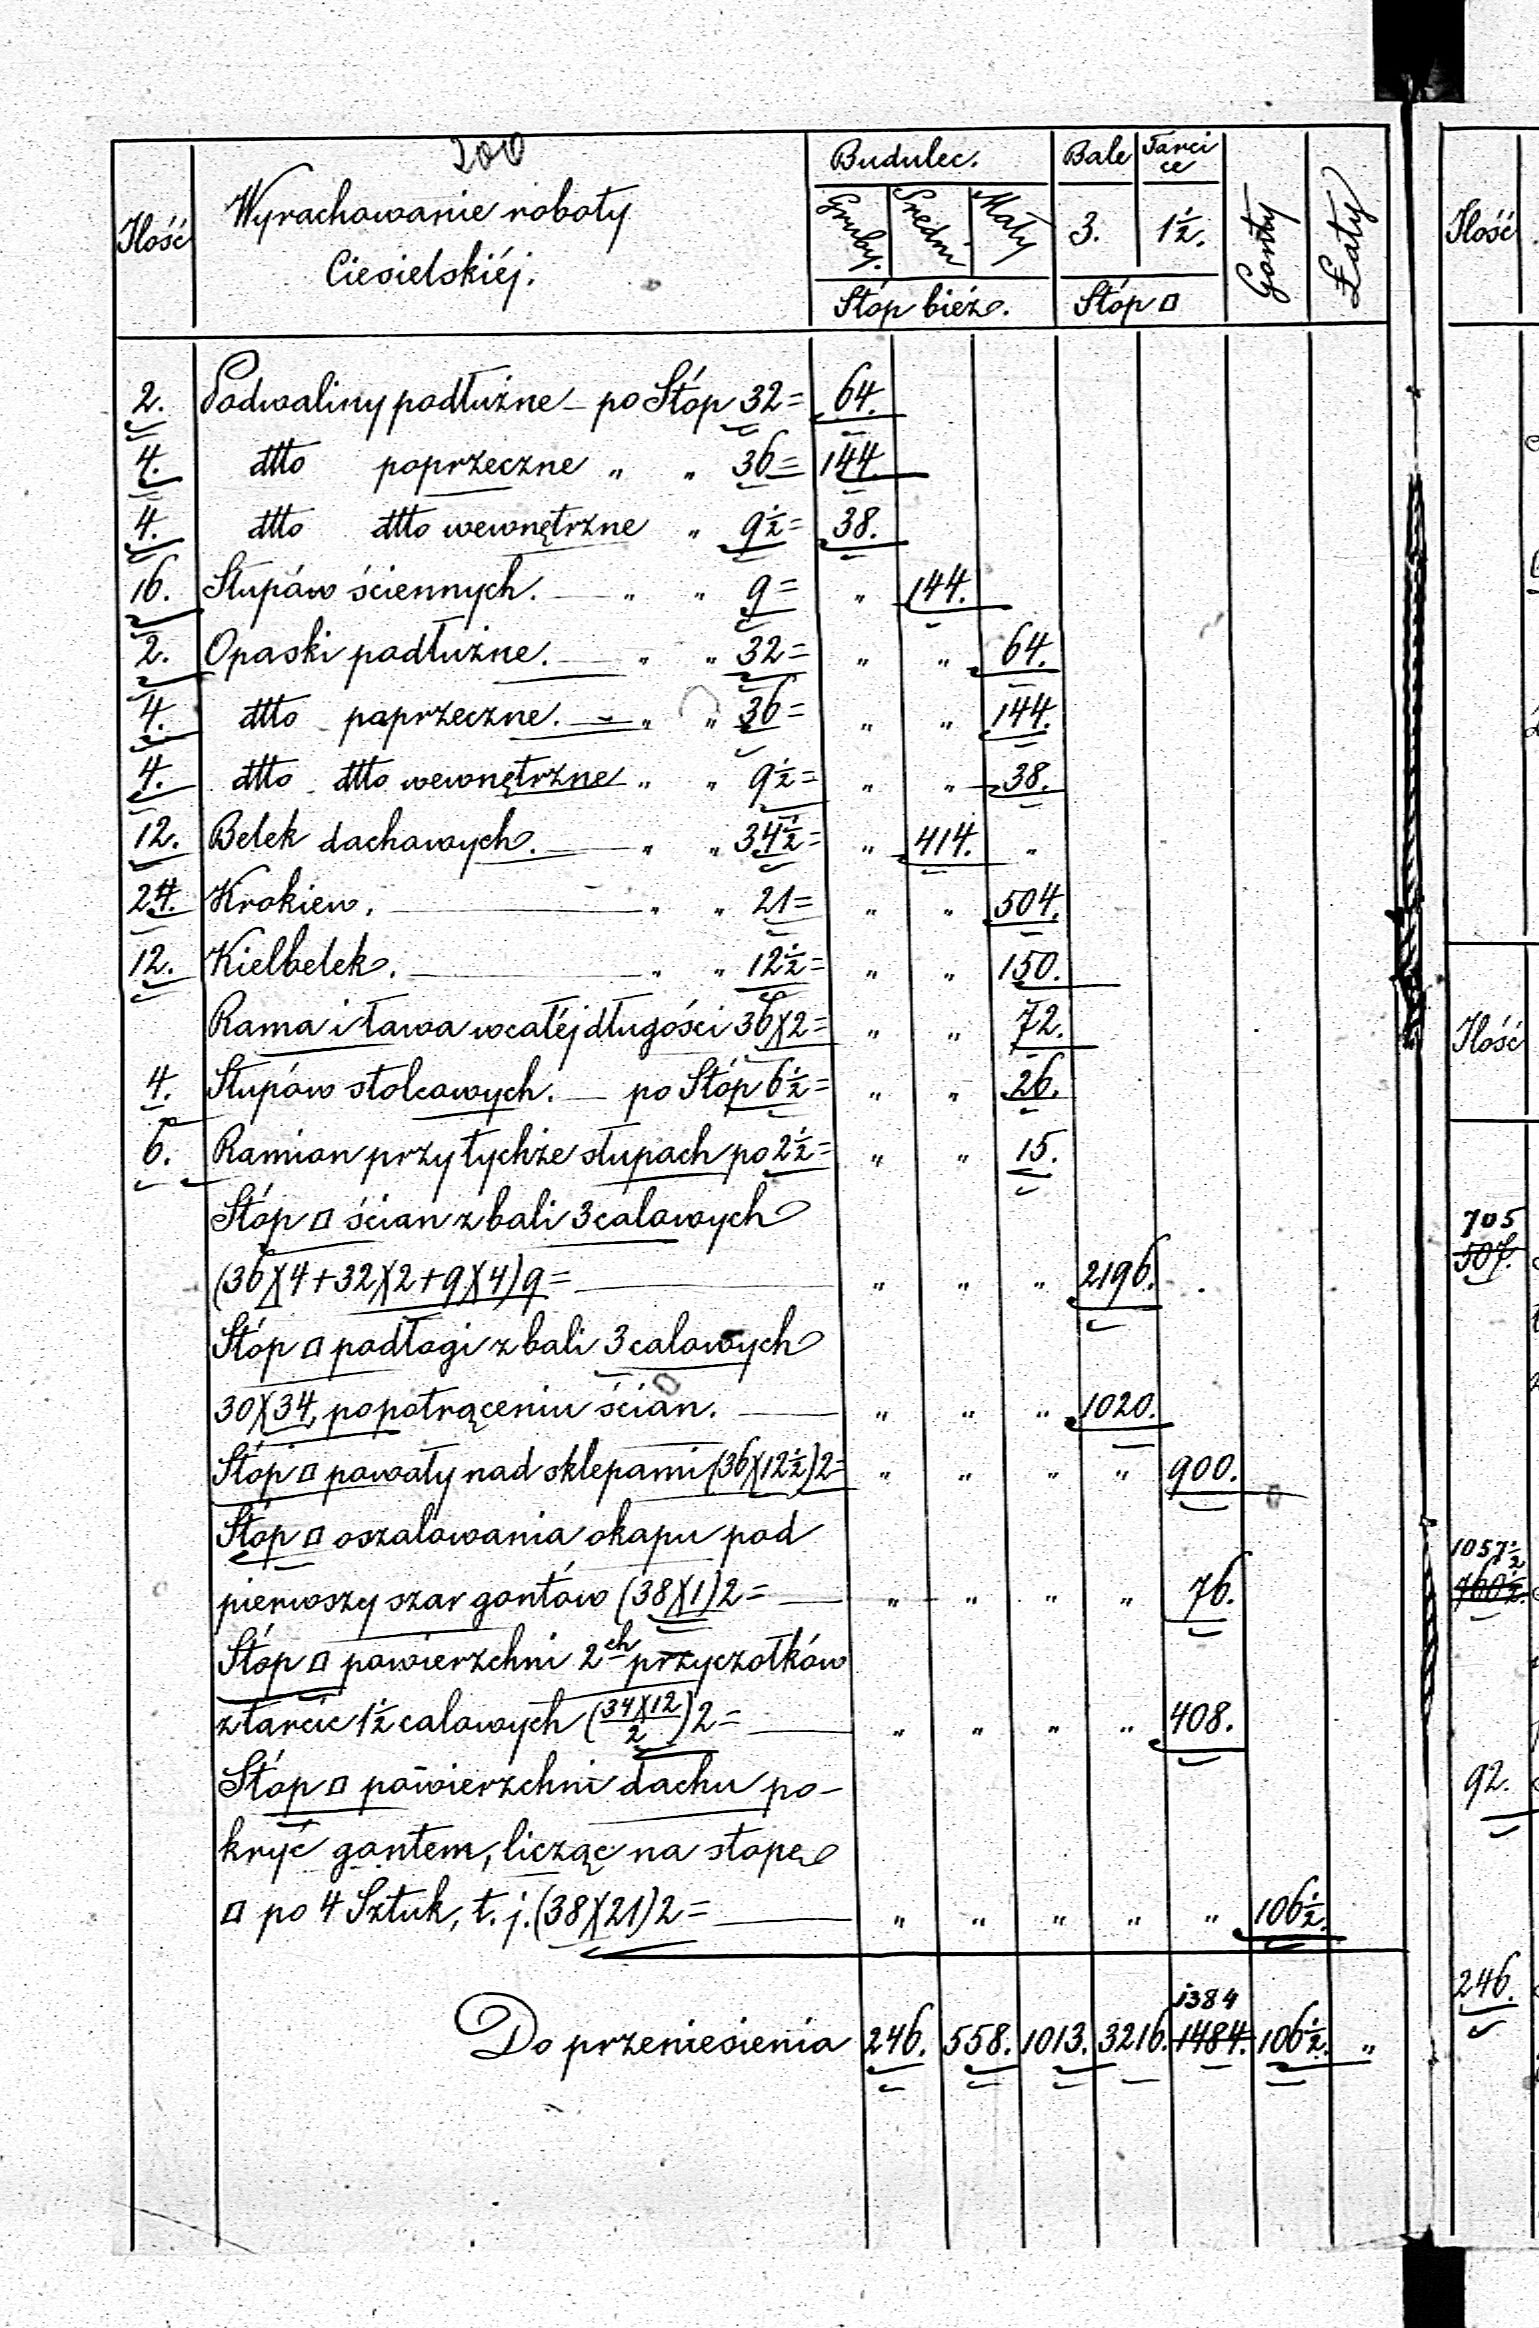 200
Ilość Wyrachowanie roboty Ciesielskiéj. Budulec. Bale Tarcice Gonty Łaty
Gruby. Średni Mały 3. 1½.
Stóp bież. Stóp □
2. Podwaliny podłużne — po Stóp 32 = 64.
4. dtto poprzeczne „ „ 36 = 144.
4. dtto dtto wewnętrzne „ 9½ = 38.
16. Słupów ściennych. — „ „ 9 = „ 144.
2. Opaski podłużne. — „ „ 32 = „ „ 64.
4. dtto poprzeczne. — „ „ 36 = „ „ 144.
4. dtto dtto wewnętrzne „ „ 9½ = „ „ 38.
12. Belek dachowych. — „ „ 34½ = „ 414. „
24. Krokiew. — „ „ 21 = „ „ 504.
12. Kielbelek. — „ „ 12½ = „ „ 150.
Rama i ława w całéj długości 36X2 = „ „ 72.
4. Słupów stolcowych. — po Stóp 6½ = „ „ 26.
6. Ramion przy tychże słupach po 2½ = „ „ 15.
Stóp □ ścian z bali 3 calowych
(36X4+32X2+9X4)9 = — „ „ „ 2196.
Stóp □ podłogi z bali 3 calowych
30X34, po potrąceniu ścian. — „ „ „ 1020.
Stóp □ powały nad sklepami (36X12½)2 = „ „ „ „ 900.
Stóp □ oszalowania okapu pod
pierwszy szar gontów (38X1)2 = — „ „ „ „ 76.
Stóp □ powierzchni 2ch przyczołków
z tarcic 1½ calowych (34X12/2)2 = — „ „ „ „ 408.
Stóp □ powierzchni dachu po-
kryć gontem, licząc na stopę
□ po 4 Sztuk, t. j. (38X21)2 = — „ „ „ „ „ 106½.
1384
Do przeniesienia 246. 558. 1013. 3216. 1484. 106½. „
Ilość
Ilość
705
507.
1057½
760½.
92.
246.